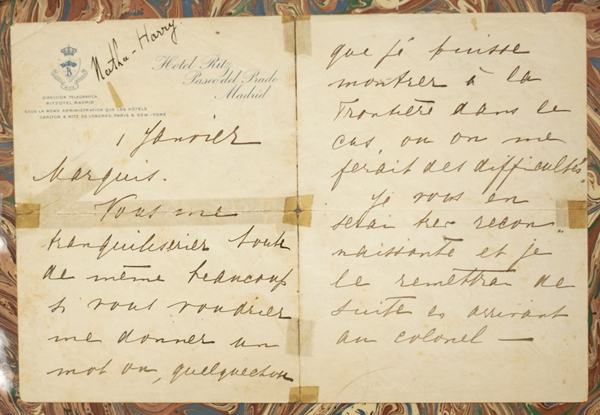 Matha-Harry
Hotel Ritz
Paseo del Prado
Madrid
DIRECCION TELEGRAFICA
RITZOTEL MADRID
SOUS LA MEME ADMINISTRATION QUE LES HOTELS
CARLTON & RITZ DE LONDRES, PARIS & NEW-YORK
1 Janvier
Marquis.
Vous me
tranquiliseriez tout
de même beaucoup
si vous voudriez
me donner un
mot ou, quelquechose
que je puisse
montrer à la
Frontière dans le
cas, ou on me
ferait des difficultés.
Je vous en
serai tres recon-
naissante et je
le remettrai de
suite en arrivant
au colonel —